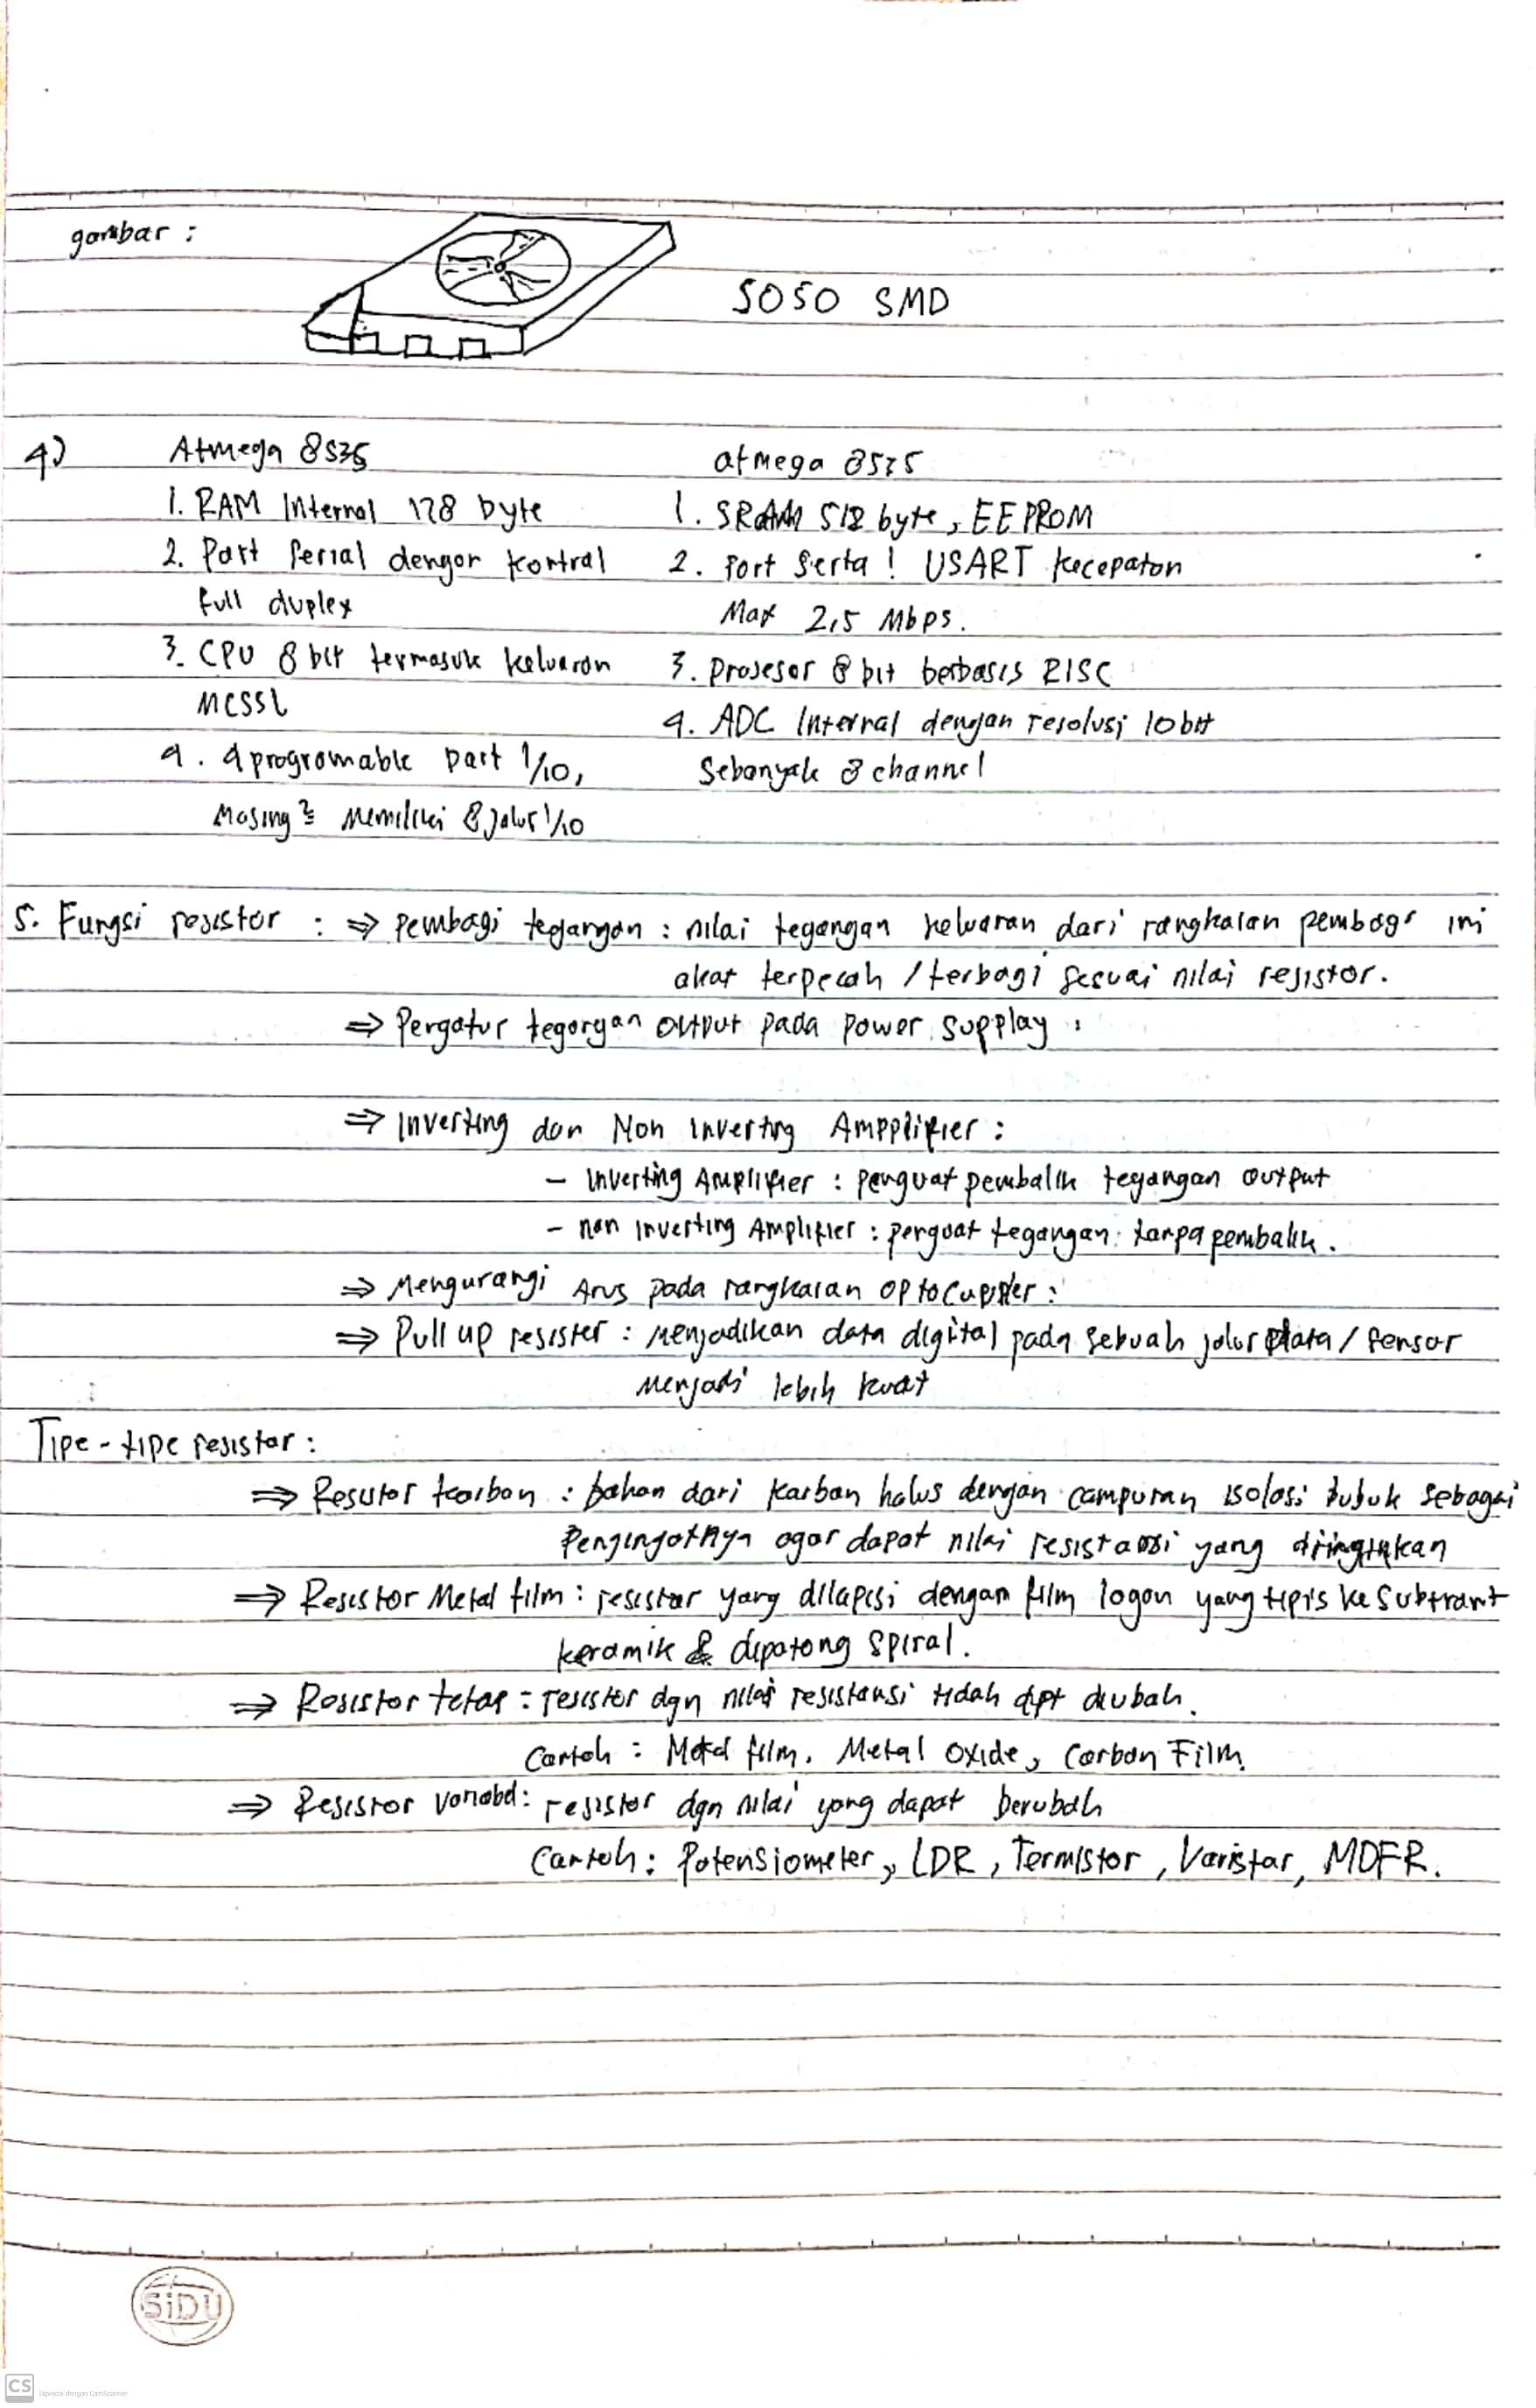 gambar :
5050 SMD
4)
Atmega 8535
1. RAM Internal 128 byte
2. Port Serial dengan kontrol
full duplex
3. CPU 8 bit termasuk keluaran
MCS51
4. 4 programable port 1/10,
Masing² memiliki 8 jalur 1/10
atmega 8535
1. SRAM 512 byte, EEPROM
2. Port Serta! USART kecepatan
Max 2,5 Mbps.
3. prosesor 8 bit berbasis RISC
4. ADC Internal dengan resolusi 10 bit
Sebanyak 8 channel
5. Fungsi resistor : ⇒ Pembagi tegangan : nilai tegangan keluaran dari rangkaian pembagi ini
akat terpecah / terbagi sesuai nilai resistor.
⇒ Pergatur tegangan output pada power supplay :
⇒ Inverting dan Non Inverting Ampplifier :
- Inverting Amplifier : penguat pembalik tegangan output
- non Inverting Amplifier : penguat tegangan tanpa pembalik.
⇒ Mengurangi Arus pada rangkaian optocuppler :
⇒ Pull up resister : menjadikan data digital pada sebuah jalur data / sensor
menjadi lebih kuat
Tipe - tipe resistor :
⇒ Resistor karbon : bahan dari karban halus dengan campuran isolasi bubuk sebagai
Pengingatnya agar dapat nilai resistansi yang diinginkan
⇒ Resistor Metal film : resistor yang dilapisi dengan film logan yang tipis ke Subtrant
keramik & dipotong spiral.
⇒ Resistor tetap : resistor dgn nilai resistansi tidah dpt diubah.
Contoh : Metal film, Metal Oxide, Carbon Film.
⇒ Resistor variabel : resistor dgn nilai yang dapat berubah
Contoh : Potensiometer, LDR, Termistor, Varistar, MDFR.
SiDU
CS Dipindai dengan CamScanner